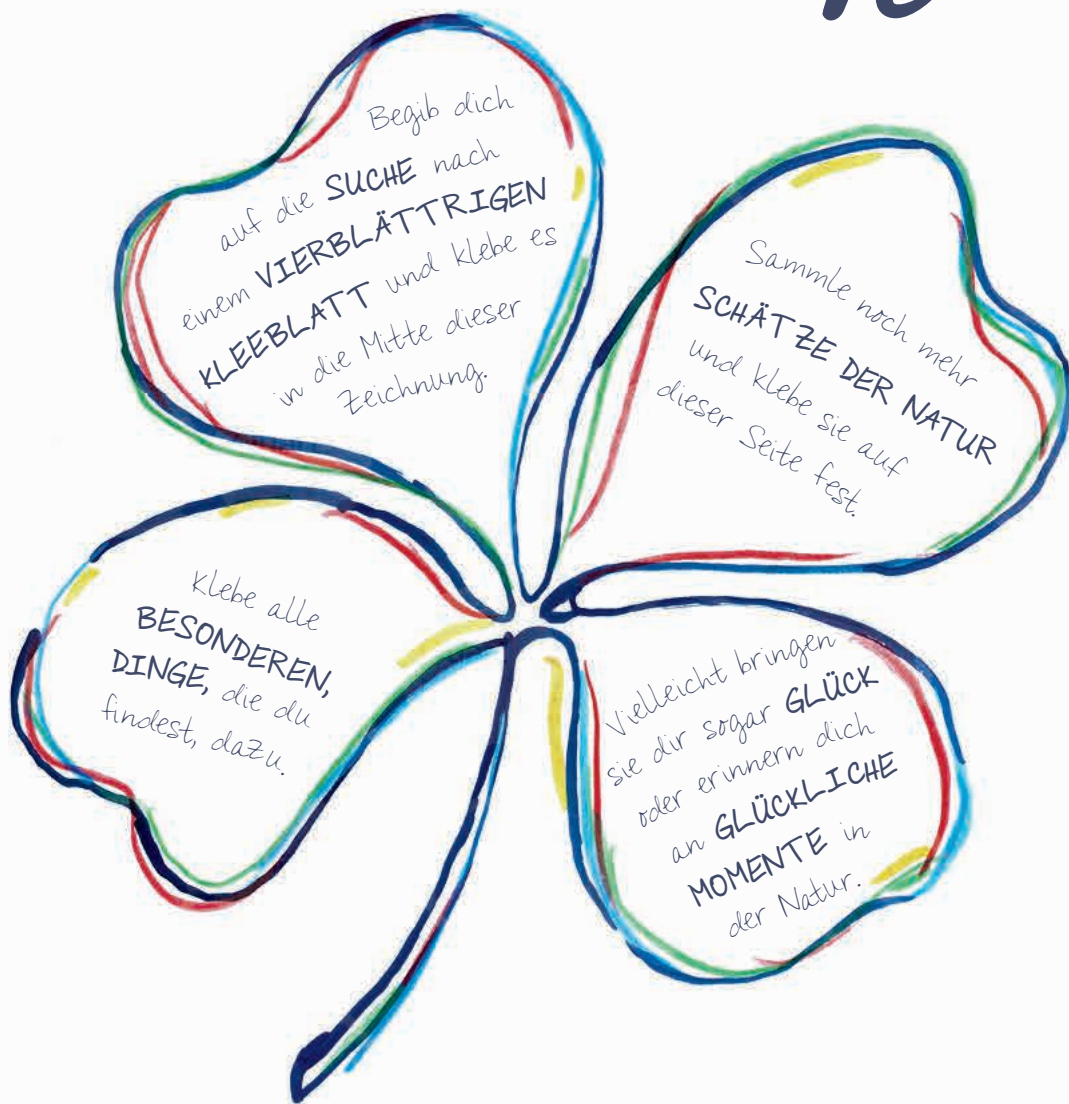 Begib dich
auf die SUCHE nach
einem VIERBLÄTTRIGEN
KLEEBLATT und klebe es
in die Mitte dieser
Zeichnung.
Sammle noch mehr
SCHÄTZE DER NATUR
und klebe sie auf
dieser Seite fest.
Klebe alle
BESONDEREN,
DINGE, die du
findest, dazu.
Vielleicht bringen
sie dir sogar GLÜCK
oder erinnern dich
an GLÜCKLICHE
MOMENTE in
der Natur.